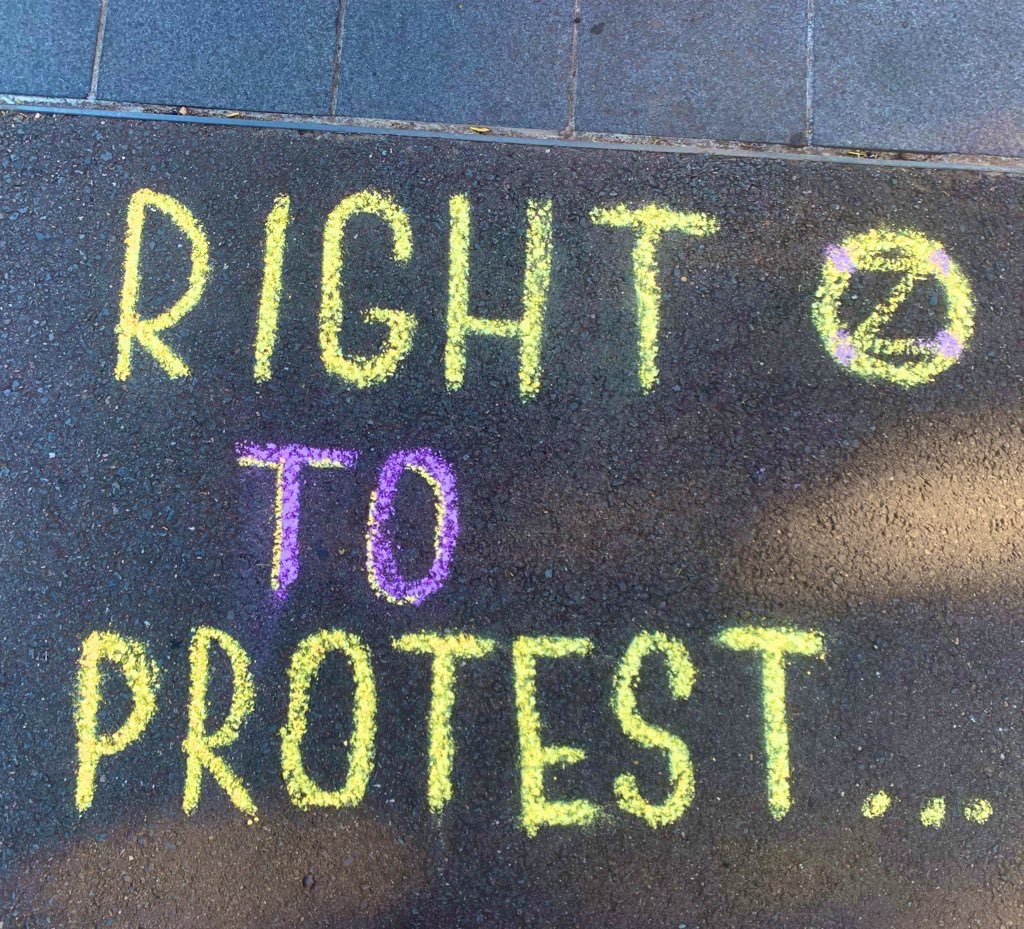 RIGHT
TO
PROTEST...